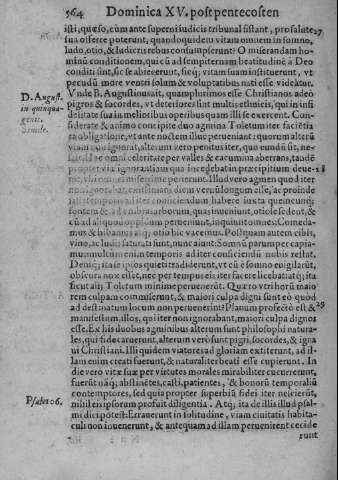 564 Dominica XV. post pentecosten
isti, quæso, cùm ante superni iudicis tribunal sistant, pro salute 27
sua offerre poterunt, quando quidem vitam omnem in somno,
ludo, otio, & ludicris rebus consumpserunt? O miserandam ho-
minũ conditionem, qui cũ ad sempiternam beatitudinẽ à Deo
conditi sint, sic se abiecerunt, sicq; vitam suam instituerunt, vt
pecudũ more ventri solum & voluptatibus nati esse videãtur.
D. August. Vnde B. Augustinus ait, quamplurimos esse Christianos adeò
in quinqua- pigros & socordes, vt deteriores sint multis ethnicis, qui in infi
gena. delitate sua in melioribus operibus quam illi se exercent. Con-
Simile. siderate & animo concipite duo agmina Toletum iter faciẽtia
obligatione, vt ante noctem illuc perueniant: quorum alterũ
viam ignorat, alterum verò penitus iter, quo eundũ sit, ne-
celeritate per valles & cacumina aberrans, tandẽ
propter viæ ignorantiam qua incedebat in præcipitium deue- 28
perierunt. Illud verò agmen quod iter
existimans diem verũ longum esse, ac proinde
temporis ad iter conficiendum habere iuxta quemcunq;
fontem & arborum, quas inueniunt, otiosè sedent, &
cũ ad aliquod oppidum perueniunt, inquiunt omnes: Comeda-
mus & bibamus aliq; otio hic vacemus. Postquam autem cibis,
vino, ac ludis saturati sunt, nunc aiunt: Somnũ parumper capia-
mus, multum enim temporis ad iter conficiendũ nobis restat.
Deniq; ita se ipsos quieti tradiderunt, vt cũ è somno euigilarũt,
obscura nox esset, nec per tempus eis iter facere licebat: atq; ita
sicut alij Toletum minimè peruenerũt. Quæro vtri horũ maio
rem culpam commiserunt, & maiori culpa digni sunt eò quod
ad destinatum locum non peruenerint? Planum profectò est & 29
manifestum, illos, qui iter non ignorabant, maiori culpa dignos
esse. Ex his duobus agminibus alterum sunt philosophi natura-
les, qui fide caruerunt, alterum verò sunt pigri, socordes, & igna
ui Christiani. Illi quidem viatores ad gloriam extiterunt, ad il-
lam enim creati fuerunt, & naturaliter beati esse cupierunt. In
die verò vitæ suæ per virtutes morales mirabiliter cucurrerunt,
fuerũt nãq; abstinẽtes, casti, patientes, & bonorũ temporaliũ
contemptores, sed quia propter superbiã fidei iter nescierũt,
Psal. 106. nihil eis ipsorum profuit diligentia. Atq; ita de illis illud psal-
mi dici potest: Errauerunt in solitudine, viam ciuitatis habita-
culi non inuenerunt, & antequam ad illam peruenirent cecide
runt